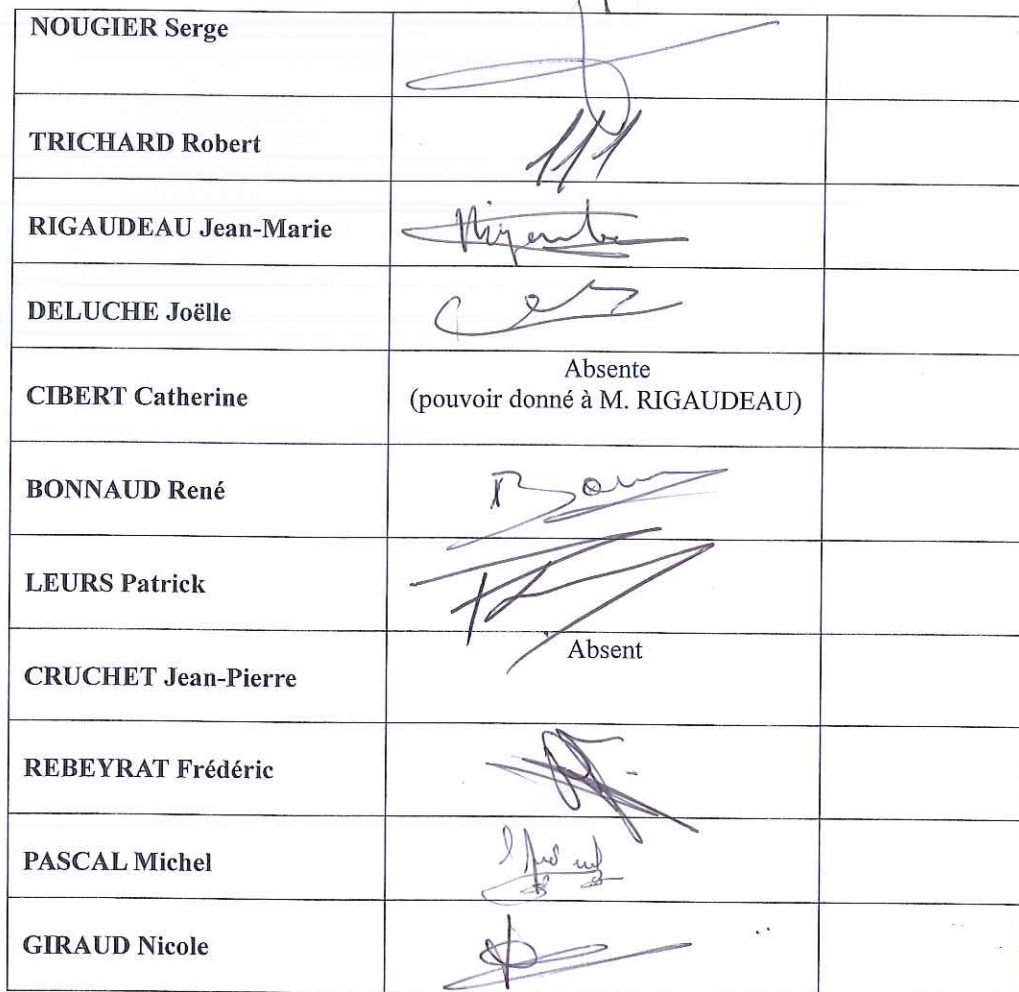 NOUGIER Serge
TRICHARD Robert
RIGAUDEAU Jean-Marie
DELUCHE Joëlle
CIBERT Catherine
Absente
(pouvoir donné à M. RIGAUDEAU)
BONNAUD René
LEURS Patrick
CRUCHET Jean-Pierre
Absent
REBEYRAT Frédéric
PASCAL Michel
GIRAUD Nicole